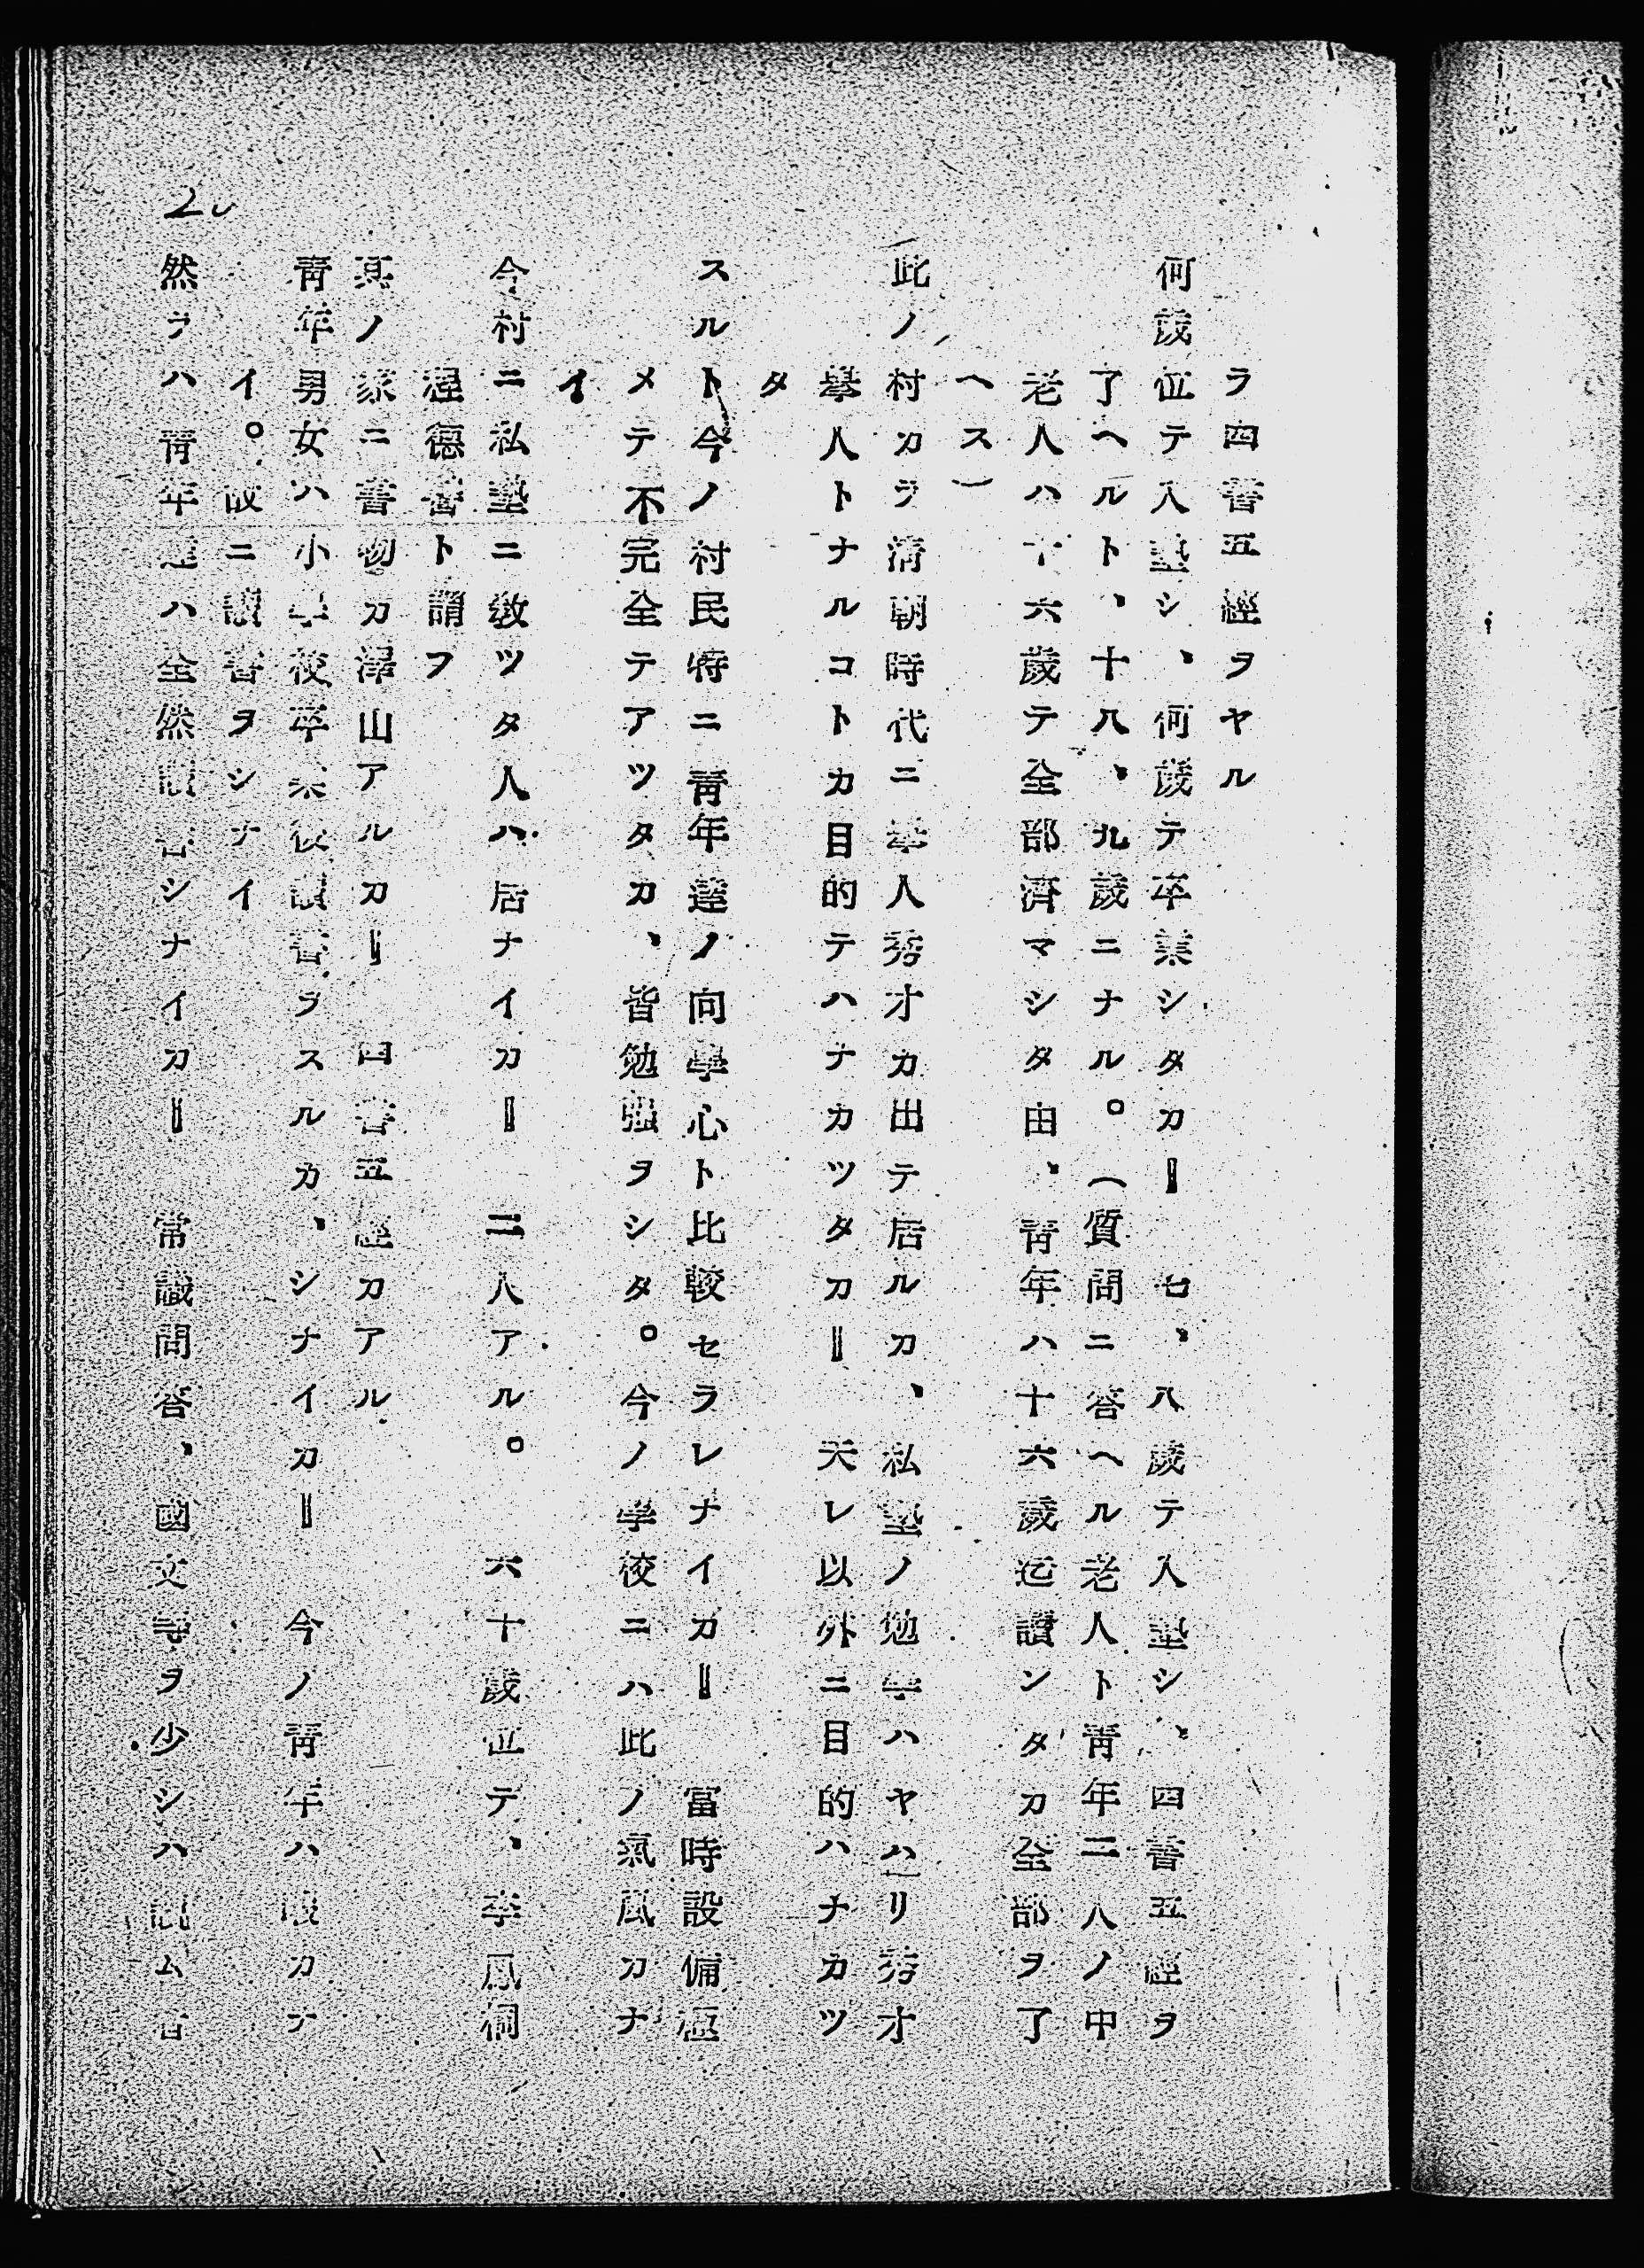 ラ四書五經ヲヤル
何歲位テ入塾シ、何歲テ卒業シタカ＝　七、八歲テ入塾シ、四書五經ヲ
了ヘルト、十八、九歲ニナル。（質問ニ答ヘル老人ト靑年二人ノ中
老人ハ十六歲テ全部濟マシタ由、靑年ハ十六歲迄讀ンタカ全部ヲ了
ヘス）
此ノ村カラ淸朝時代ニ擧人秀才カ出テ居ルカ、私塾ノ勉學ハヤハリ秀才
擧人トナルコトカ目的テハナカツタカ＝　夫レ以外ニ目的ハナカツ
タ
スルト今ノ村民特ニ靑年達ノ向學心ト比較セラレナイカ＝　當時設備極
メテ不完全テアツタカ、皆勉强ヲシタ。今ノ學校ニハ此ノ氣風カナ
イ
今村ニ私塾ニ敎ツタ人ハ居ナイカ＝　二人アル。　六十歲位テ、李鳳桐
程德書ト謂フ
其ノ家ニ書物カ澤山アルカ＝　四書五經カアル
靑年男女ハ小學校卒業後讀書ヲスルカ、シナイカ＝　今ノ靑年ハ暇カナ
イ。故ニ讀書ヲシナイ
然ラハ靑年達ハ全然讀書シナイカ＝　常識問答、國文等ヲ少シハ讀ム書
20